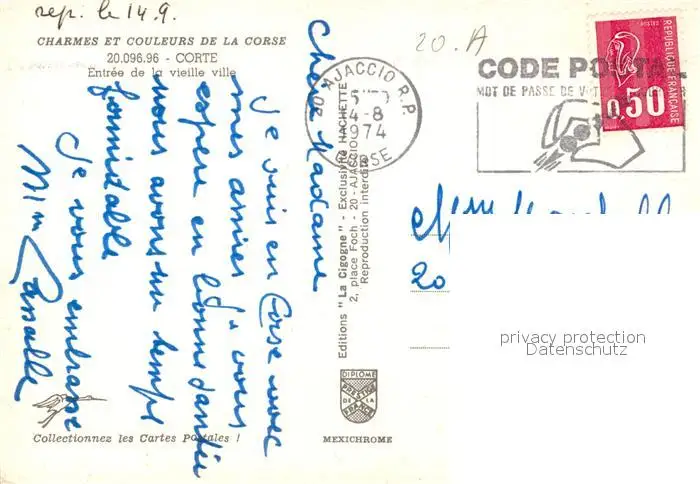 rep. le 14.9.
CHARMES ET COULEURS DE LA CORSE
20.096.96 - CORTE
Entrée de la vieille ville
Chère Madame
Je suis en Corse avec
mes amies
espère en bonne santée
nous avons un temps
formidable
Je vous embrasse
Mme Lassalle
Collectionnez les Cartes Postales !
Editions "La Cigogne" - Exclusivité HACHETTE
2, place Foch - 20 - AJACCIO
Reproduction interdite
DIPLOME
PRESTIGE
DE LA
FRANCE
MEXICHROME
20. A
20 AJACCIO R.P.
4-8
1974
CORSE
CODE POSTAL
MOT DE PASSE DE
POSTES
REPUBLIQUE FRANÇAISE
0,50
Mme
20
privacy protection
Datenschutz